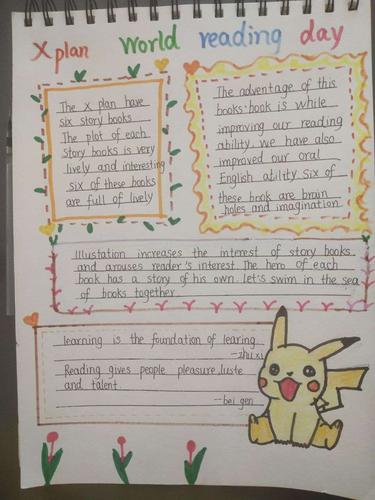 X plan world reading day
The X plan have
six story books
The plot of each
story books is very
lively and interesting
six of these books
are full of lively
The advantage of this
books.book is while
improving our reading
ability. we have also
improved our oral
English ability Six of
these book are brain
holes and imagination
Illustation increases the interest of story books
and arouses reader's interest The hero of each
book has a story of his own let's swim in the sea
of books together
learning is the foundation of learing
—zhu xi
Reading gives people pleasure, luste
and talent
—bei gen